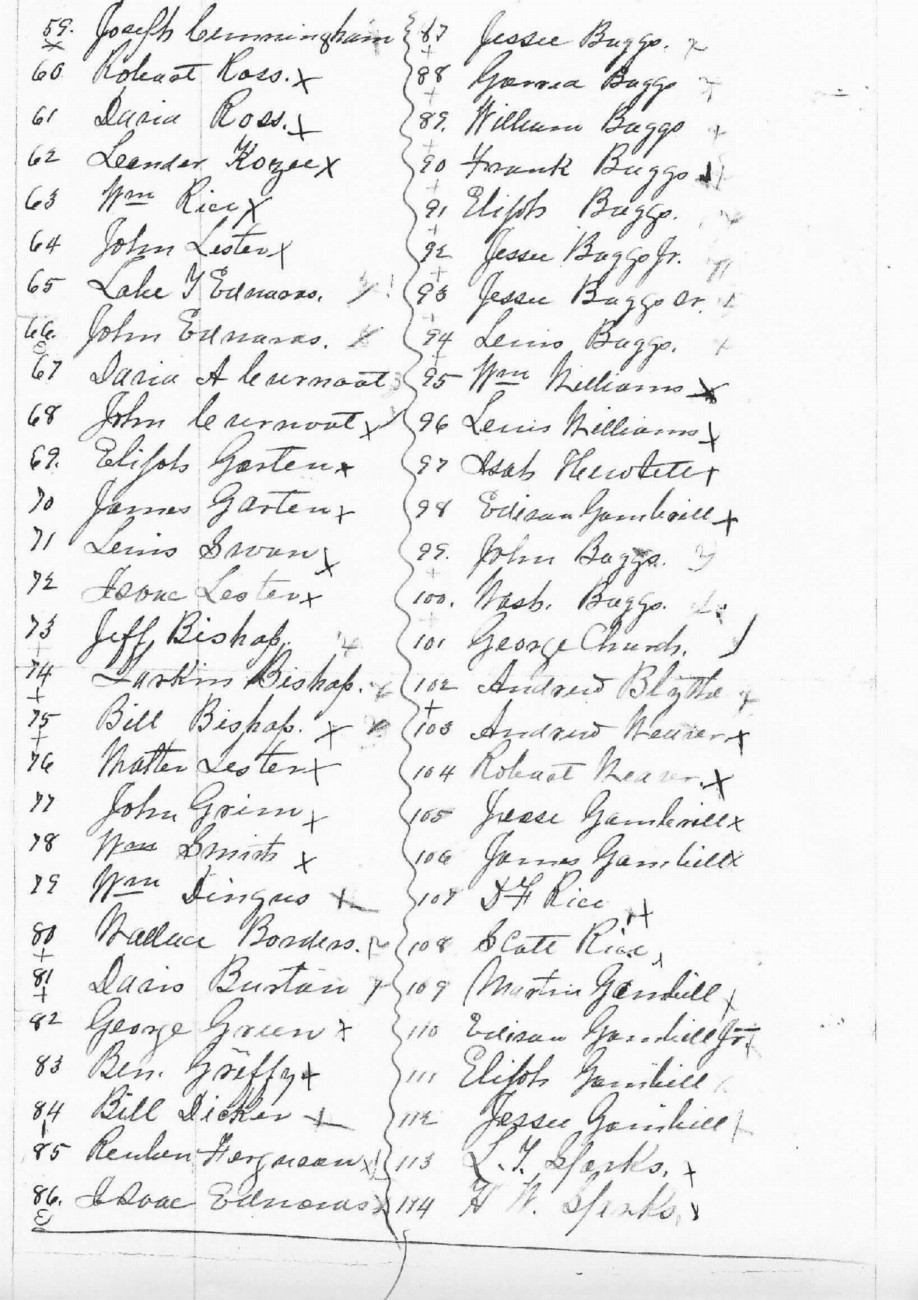 59. Joseph Cunningham
60 Robert Ross. x
61 David Ross. x
62 Leander Kozee x
63 Wm Rice x
64 John Lester x
65 Lake T Edwards.
66. John Edwards.
67 David A Curnoat
68 John Curnoat x
69. Elijoh Garten x
70 James Garten x
71 Lewis Swan x
72 Isaac Lester x
73 Jeff Bishop.
74 Larkin Bishop.
75 Bill Bishop. x x
76 Walter Lester x
77 John Grim x
78 Wm Smith x
79 Wm Dingus x
80 Wallace Borders.
81 Davis Burtan
82 George Green x
83 Ben. Griffy x
84 Bill Dicker x
85 Reuben Ferguson x
86. Isaac Edwards x
87 Jessee Baggs. x
88 Baggs
89. William Baggs
90 Frank Baggs
91 Elijoh Baggs.
92 Jessee Baggs Jr.
93 Jessee Baggs Sr.
94 Lewis Baggs.
95 Wm Williams x
96 Lewis Williams x
97 x
98 Edison Gambill x
99. John Baggs.
100. Wash. Baggs.
101 George Church.
102 Andrew Blythe x
103 Andrew Weaver x
104 Robert Weaver. x
105 Jesse Gambill x
106 James Gambill x
107 D F Rice x
108 Scott Rice x
109 Martin Gambill x
110 Edison Gambill Jr x
111 Elijoh Gambill
112 Jessee Gambill x
113 L. T. Sparks. x
114 H W. Sparks. x